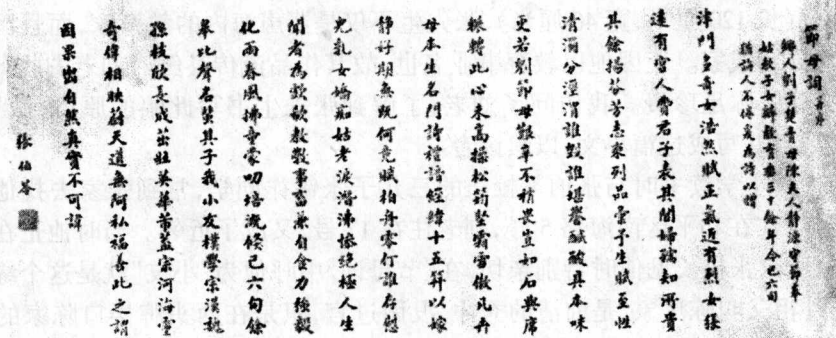 節母詞 并序
鄉人劉子髫青母陳太人静淑守節事
姑教子辛酸教十年今已六旬
猶詩人吊傳爰為詩以贈
津門多奇女浩然賦正氣近有烈女張
遠有宮人費君子表其閭歸誠知所貴
其餘揚芬人志乘列品彙予生賦至性
清濁分涇渭誰毀誰培譽鹹酸具本味
更若劉節母艱辛不稍畏豈如石與席
轉此心未高操松筠堅霜雪傲凡卉
母本生名門詩禮諳經緯十五拜以嫁
静好頗無既何竟賦柏舟零仃誰存慰
兒乳女嬌姑老淚潛沸慘絕極人生
聞者為歔欷教養事畜兼自食力強毅
化雨春風拂予蒙叨培溉倏已六旬餘
皋比聲名其子我小友樸學宗漢魏
孫枝欣長成茁壯華蕾宗河汾靈
奇偉相映蔚天道無阿私福善此之謂
因果出自然真實不可諱
張伯苓